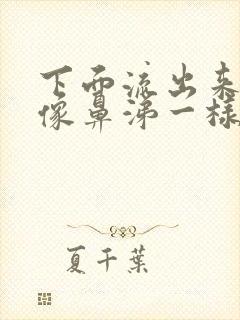 下面流出来
像鼻涕一样
夏千葉